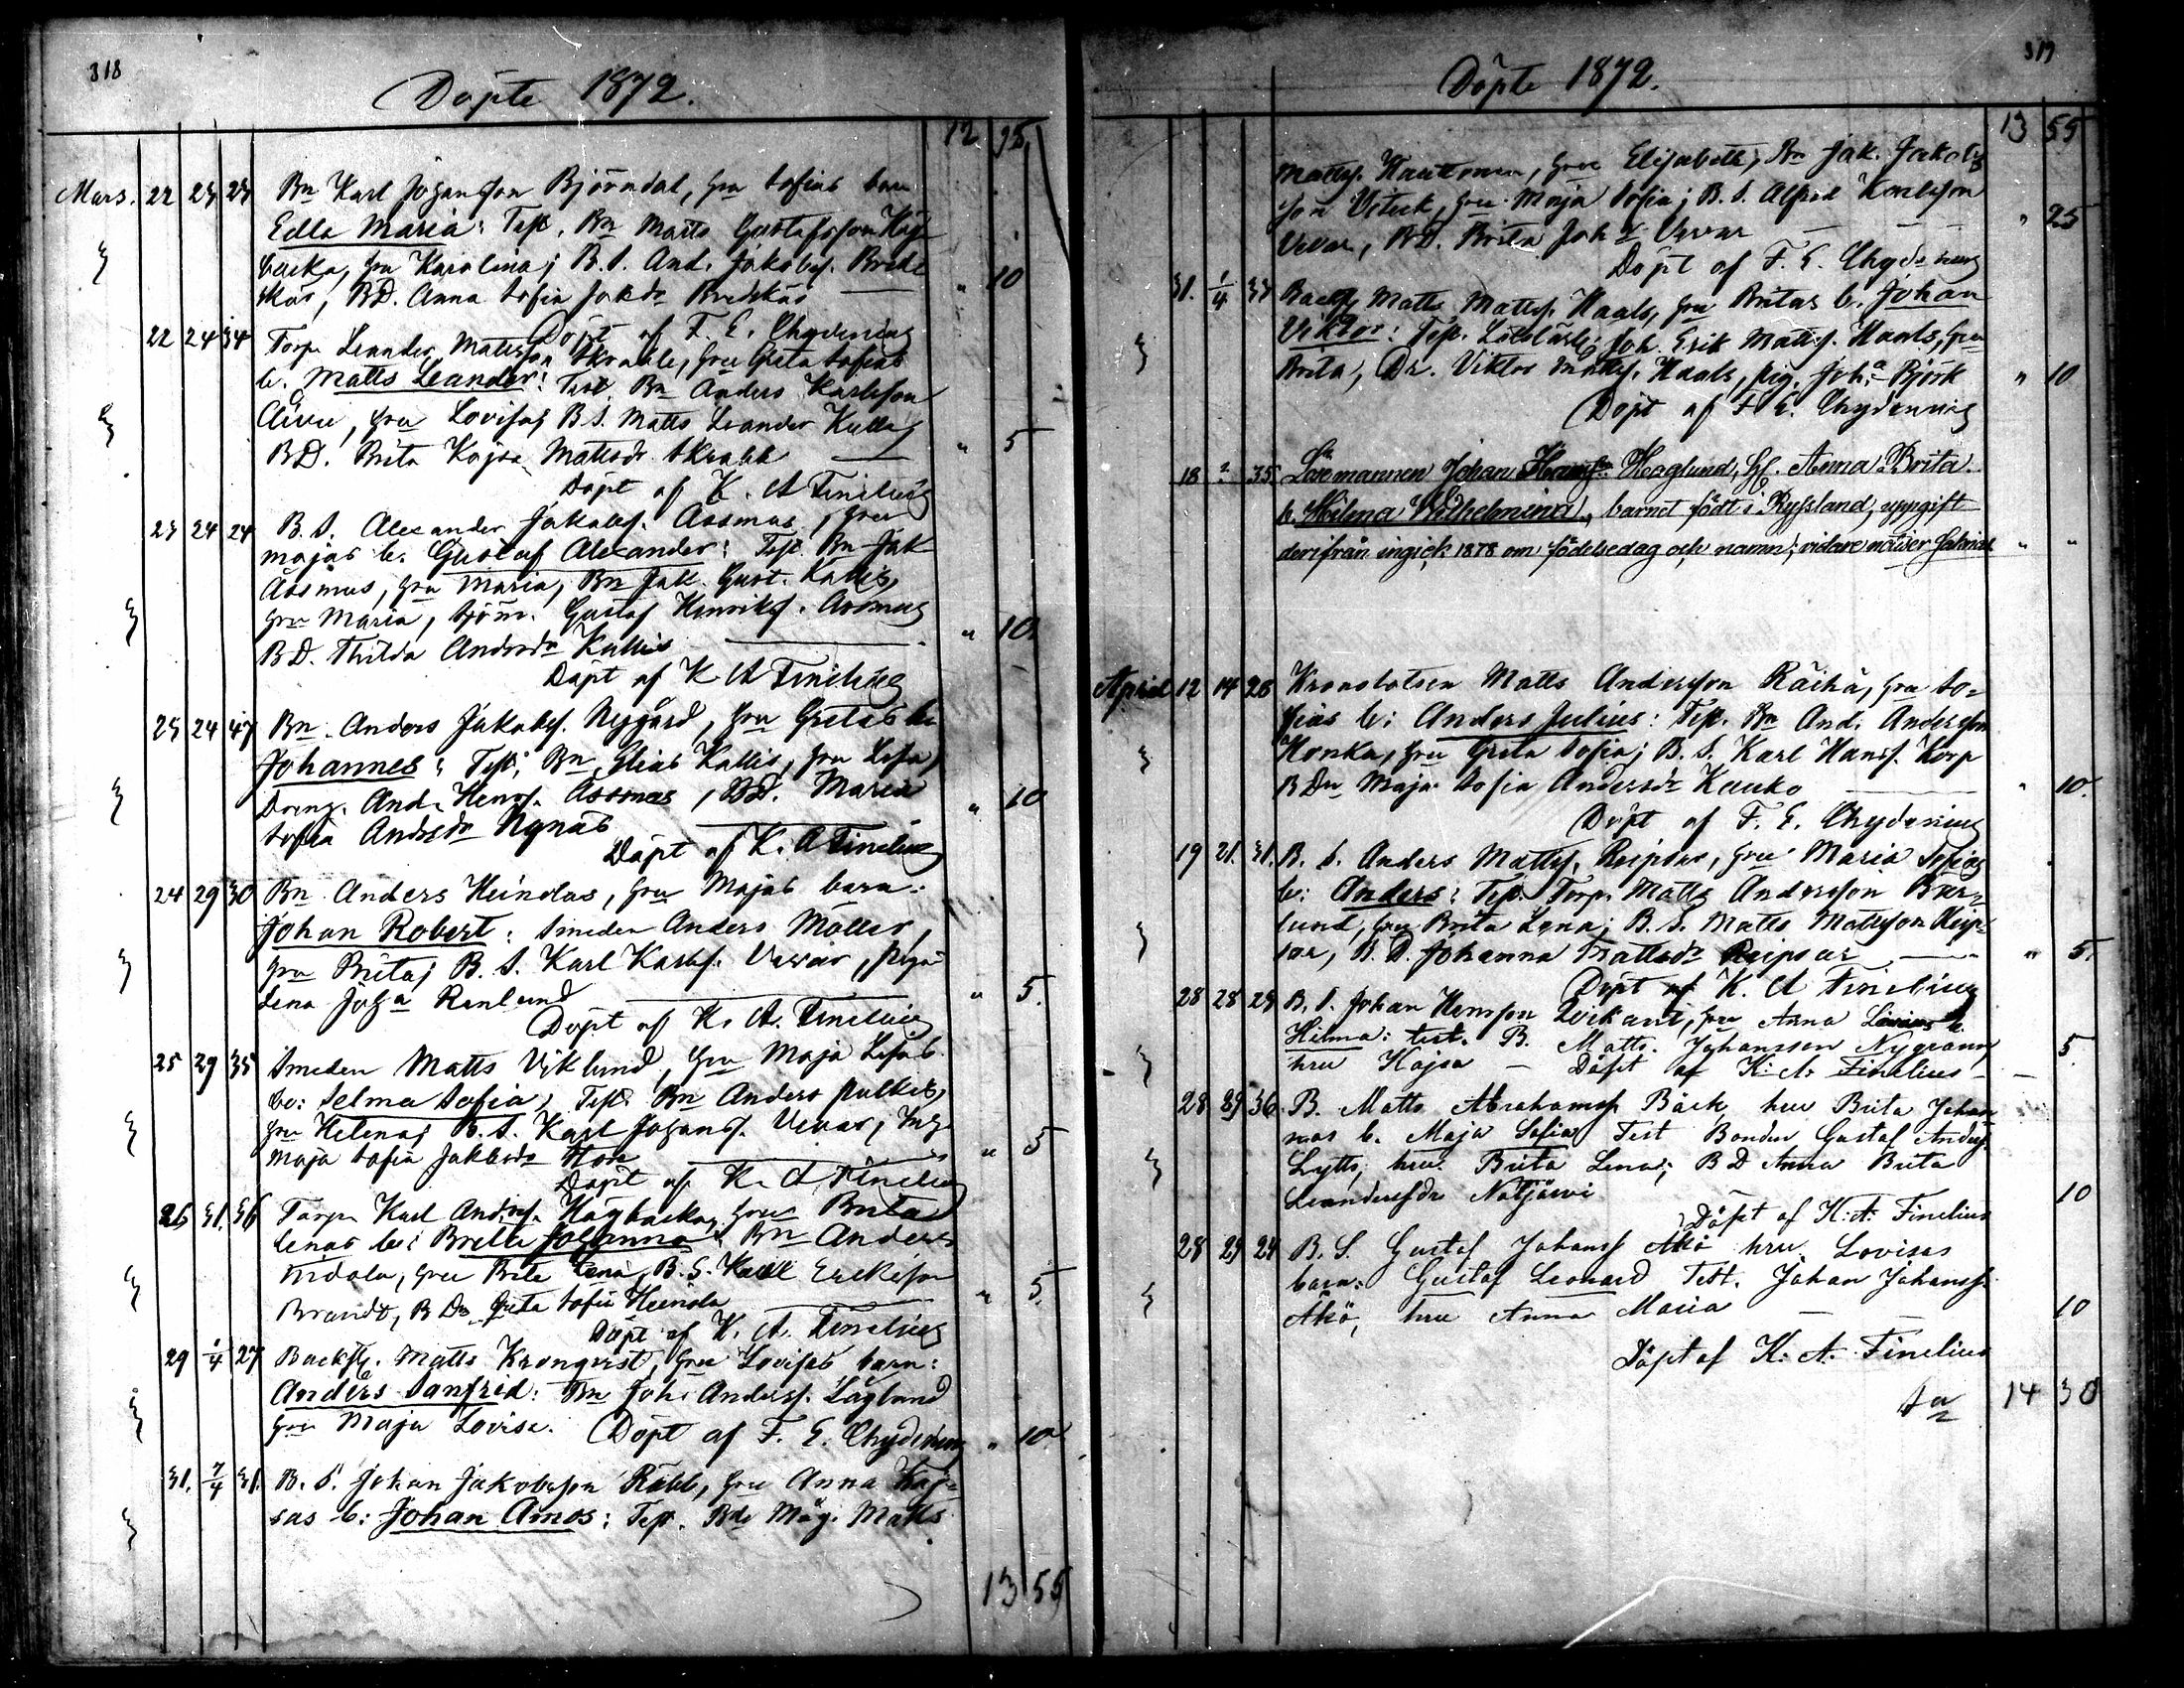 318
Döpte 1872.
12 95
Mars. 22 23 23 Bn Karl Johansson Björndal, hru Sofias barn
Edla Maria: Test. Bn Matts Gustafsson Hög-
backa, hru Karolina; B.S. And. Jakobss. Bred-
skär, BD. Anna Sofia Jakdr Bredskär — " 10
Döpt af F. E. Chydenius
22 24 34 Torp. Leander Mattsson Skrabb, hru Greta Sofias
b. Matts Leander: Test. Bn Anders Karlsson
hru Lovisa; B.S. Matts Leander
BD. Brita Kajsa Mattsdr Skrabb — " 5
Döpt af K. A Finelius
23 24 24 B.S. Alexander Jakobss. Assmus, hru
Majas b. Gustaf Alexander: Test. Bn Jak
Assmus, hru Maria, Bn Jak. Gust. Kallis,
hru Maria, Sjöm. Gustaf Henrikss. Assmus
BD. Thilda Andersdr Kallis — " 10
Döpt af K A Finelius
23 24 47 Bn Anders Jakobss. Nygård, hru Gretas b.
Johannes: Test. Bn Elias Kallis, hru Lisa,
Dreng. And. Henrss. Assmus, BD. Maria
Sofia Andersdr Nynäs — " 10
Döpt af K. A Finelius
24 29 30 Bn Anders Heindus, hru Majas barn:
Johan Robert: Smeden Anders Möller,
hru Brita; B.S. Karl Karlss. Vervar, piga
Lena Joh:a Renlund — " 5.
Döpt af K. A. Finelius
25 29 35 Smeden Matts Viklund, hru Maja Lisas
b: Selma Sofia, Test. Bn Anders Pulkis,
hru Helena; B.S. Karl Johanss. Vervar,
Maja Sofia Jakobsdr — " 5
Döpt af K. A Finelius
26 31. 36 Torp. Karl Anderss. Högbacka, hru Brita
Lenas b: Brita Johanna: Bn Anders
hru Brita Lena, B.S. Karl Eriksson
Brandt, BDr Greta Sofia Heinola — " 5.
Döpt af K. A. Finelius
29 1/4 27 Backst. Matts Kronqvist, hru Lovisas barn:
Anders Sanfrid: Bn Joh. Anderss. Låglund
hru Maja Lovisa. Döpt af F. E. Chydenius " 10
31. 7/4 31. B.S. Johan Jakobsson Rabb, hru Anna Kaj-
sas b: Johan Amos: Test. Bde Måg. Matts
13 55
319
Döpte 1872.
13 55
Mattss. Kautonen, hru Elisabeth, Bn Jak. Jakobs-
son Vitick, hru Maja Sofia; B.S. Alfred Karlsson
Vervar, BD. Brita Joh:dr Vervar — — — " 25
Döpt af F. E. Chydenius
31. 1/4 33 Backst. Matts Mattss. Haals, hru Britas b. Johan
Viktor: Test. Joh. Erik Mattss. Haals, hru
Brita, Dr. Viktor Mattss. Haals, pig. Joh:a Björk " 10
Döpt af F. E. Chydenius
18 ? 35 Johan Haglund, h. Anna Brita
b. Hilma Wilhelmina, barnet född i Ryssland, uppgift
derifrån ingick 1878 om födelsedag och namn; vidare notiser saknas " "
April 12 14 28 Kronolotsen Matts Andersson Räihä, hru So-
fias b: Anders Julius: Test. Bn And. Andersson
Honka, hru Greta Sofia; B.S. Karl Hanss. Korp
BDr Maja Sofia Andersdr Kauko — " 10.
Döpt af F. E. Chydenius
19 21. 31. B.S. Anders Mattss. Reipsar, hru Maria Sofias
b: Anders: Test. Torp. Matts Andersson Bur-
lund, hru Brita Lena; B.S. Matts Mattsson Reip-
sar, B.D. Johanna Mattsdr Reipsar — " 5.
Döpt af K. A Finelius
28 28 23 B.S. Johan Hansson hru Anna Lovisas b.
Hilma: test. B. Matts. Johansson Nygrann
hru Kajsa — Döpt af K. A. Finelius — 5
28 29 36 B. Matts Abrahamss. Bäck, hru Brita Johan-
nas b. Maja Sofia Test Bonden Gustaf Anderss.
Lytts, hru Brita Lena; B D Anna Brita
Leandersdr Notjärvi 10
Döpt af K. A. Finelius
28 29 24 B.S. Gustaf Johanss Åkö hru Lovisas
barn: Gustaf Leonard Test. Johan Johanss.
Åkö, hru Anna Maria — — 10
Döpt af K. A. Finelius
Sa 14 30